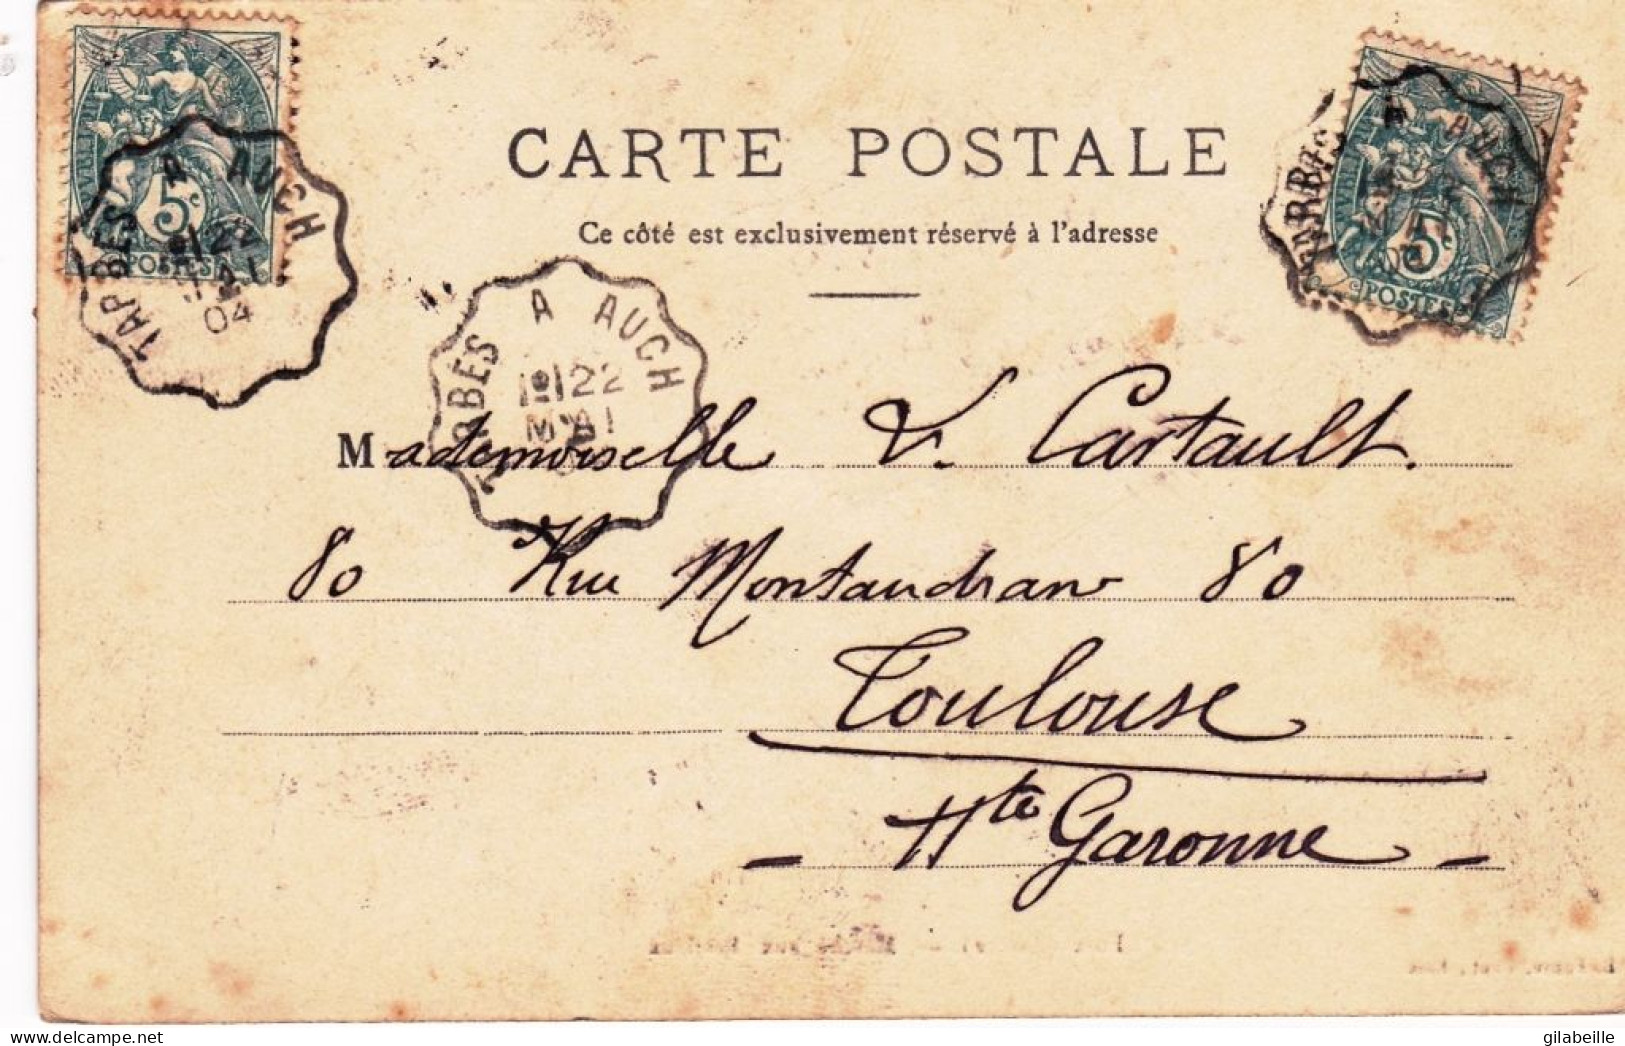 5c
POSTES
TARBES A AUCH
1º 22
MAI
04
CARTE POSTALE
Ce côté est exclusivement réservé à l'adresse
TARBES A AUCH
1º 22
MAI
A AUCH
TARBES
5c
POSTES
Mademoiselle V. Cartault.
80 Rue Montaudran 80
Toulouse
- Hte Garonne -
delcampe.net
gilabeille